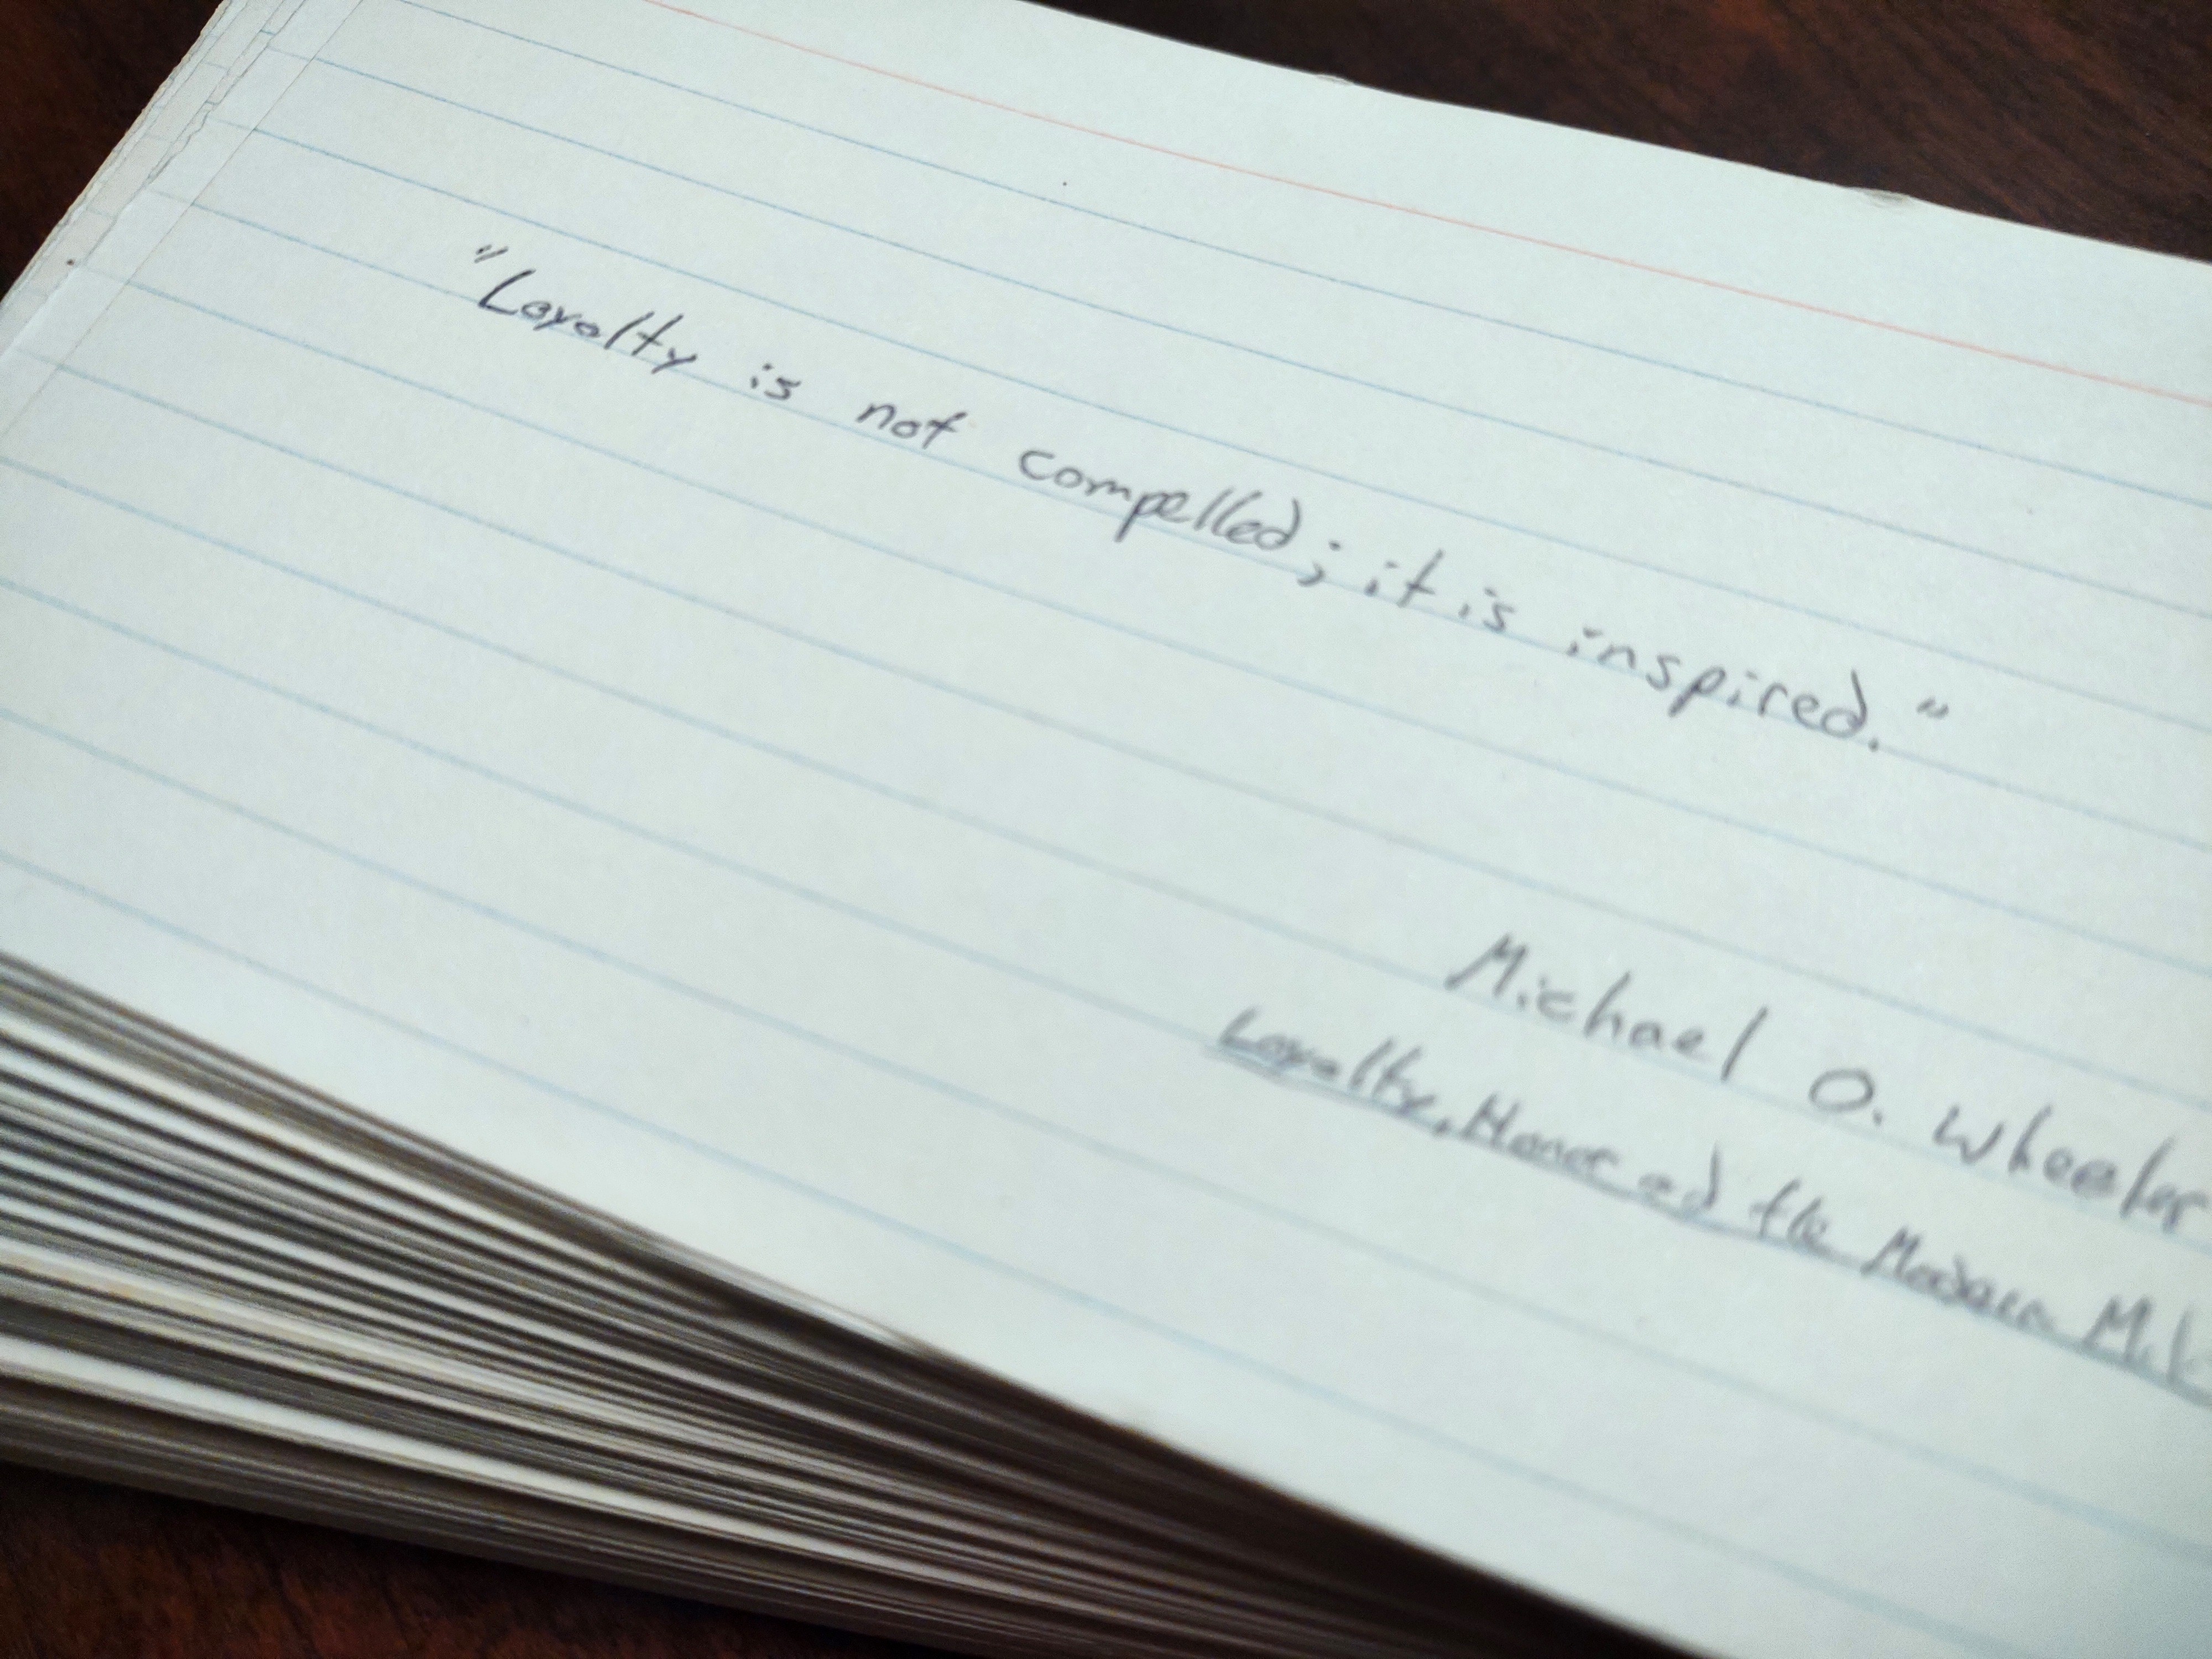 "Loyalty is not compelled; it is inspired."
Michael O. Wheeler
Loyalty, Honor and the Modern